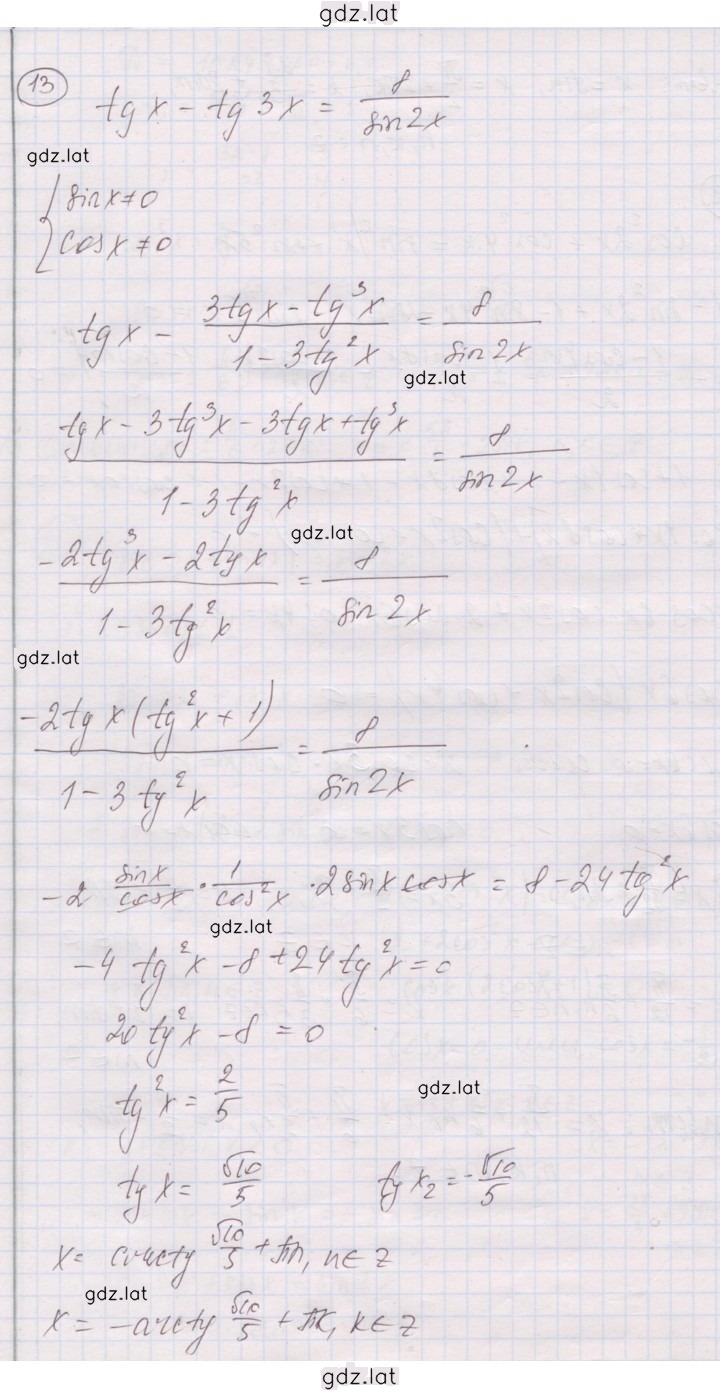 gdz.lat
13
tg x - tg 3x = 8/sin2x
gdz.lat
{ sin x ≠ 0
cos x ≠ 0
tg x - (3tg x - tg³x)/(1 - 3tg²x) = 8/sin2x
gdz.lat
(tg x - 3tg³x - 3tg x + tg³x)/(1 - 3tg²x) = 8/sin2x
gdz.lat
(-2tg³x - 2tg x)/(1 - 3tg²x) = 8/sin2x
gdz.lat
-2tg x (tg²x + 1)/(1 - 3tg²x) = 8/sin2x
-2 sinx/cosx · 1/cos²x · 2sinx cosx = 8 - 24tg²x
gdz.lat
-4 tg²x - 8 + 24tg²x = 0
20tg²x - 8 = 0
gdz.lat
tg²x = 2/5
tg x = √10/5 tg x₂ = -√10/5
x = arctg √10/5 + πn, n ∈ z
gdz.lat
x = -arctg √10/5 + πk, k ∈ z
gdz.lat